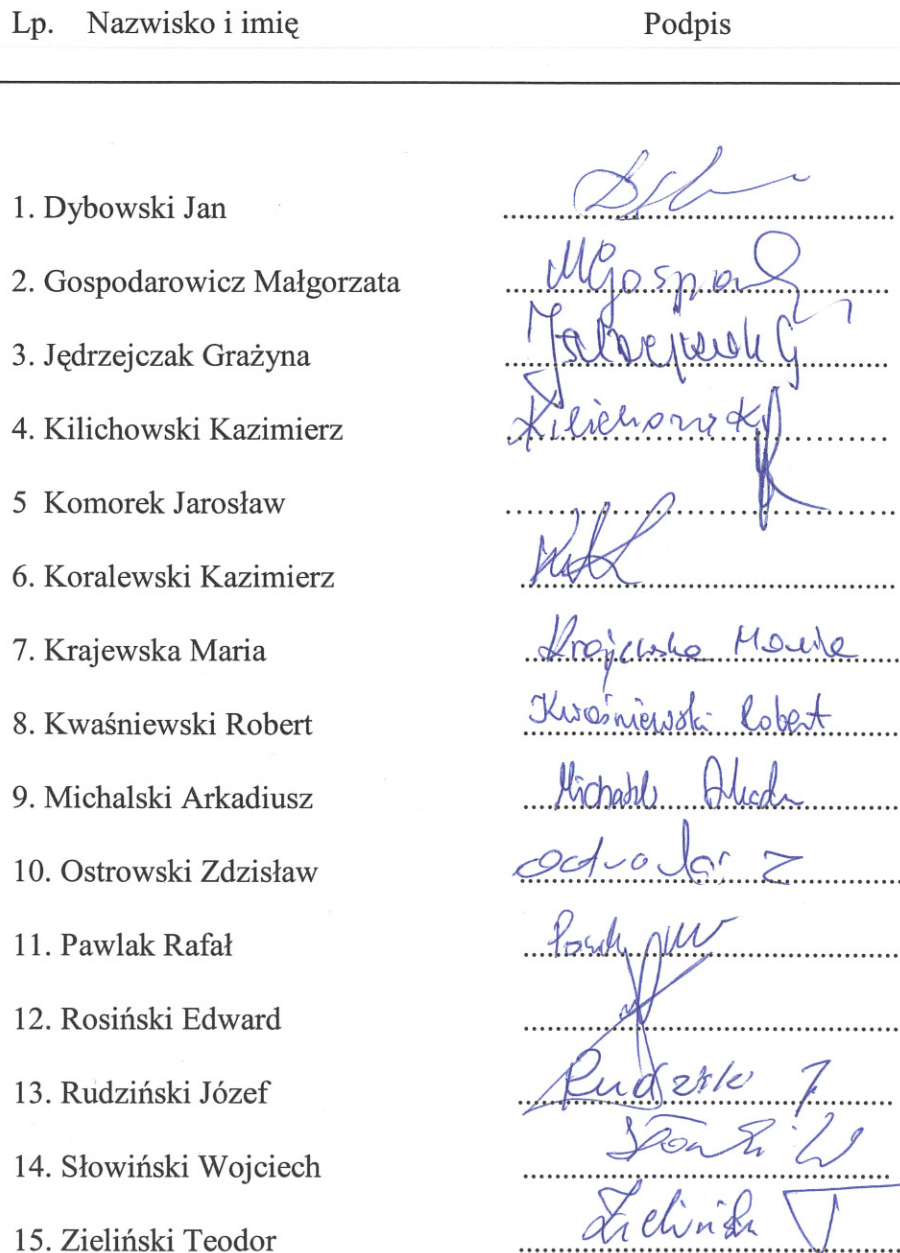 Lp. Nazwisko i imię Podpis
1. Dybowski Jan
2. Gospodarowicz Małgorzata MGospod
3. Jędrzejczak Grażyna Jędrzejczak G
4. Kilichowski Kazimierz Kilichowski K
5 Komorek Jarosław
6. Koralewski Kazimierz
7. Krajewska Maria Krajewska Maria
8. Kwaśniewski Robert Kwaśniewski Robert
9. Michalski Arkadiusz
10. Ostrowski Zdzisław
11. Pawlak Rafał
12. Rosiński Edward
13. Rudziński Józef
14. Słowiński Wojciech
15. Zieliński Teodor Zieliński T